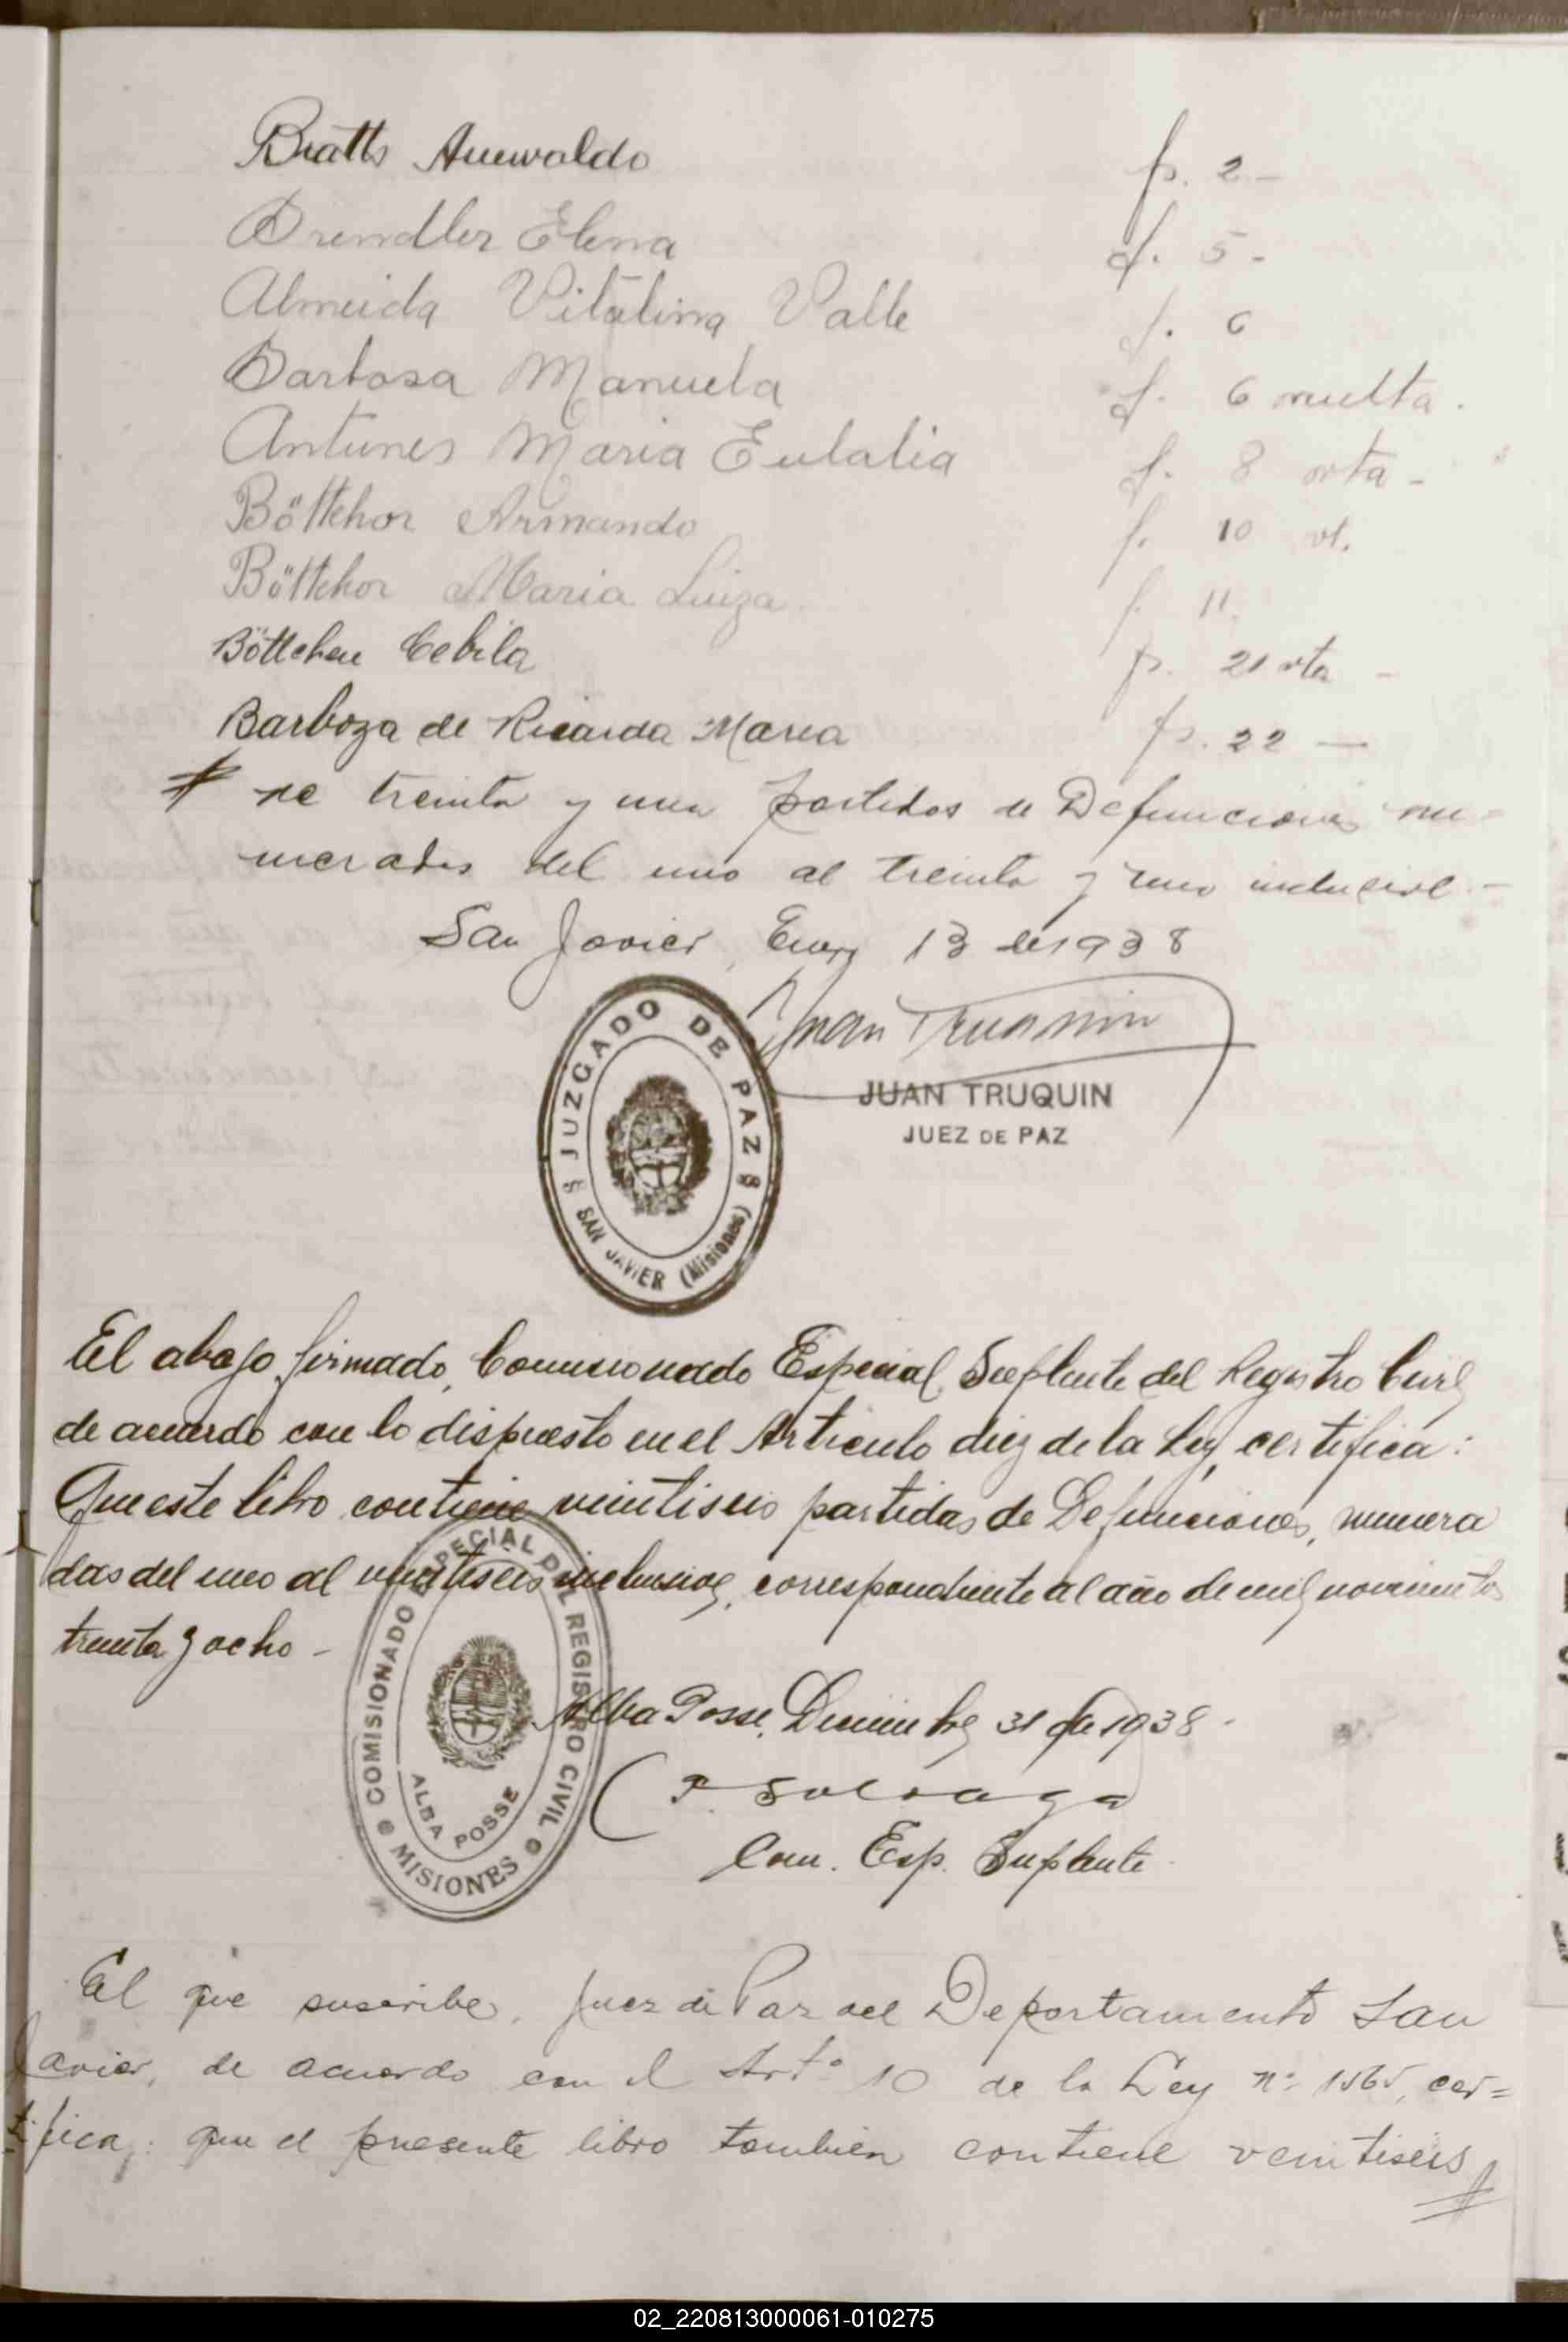 Bratts Auwaldo fs. 2 -
Brendler Elena f. 5 -
Almeida Vitalina Valle f. 6
Barbosa Manuela f. 6 vuelta.
Antunes Maria Eulalia f. 8 vta -
Böttchor Armando f. 10 vt.
Böttchor Maria Luiza f. 11.
Böttcher Cebila fs. 21 vta -
Barboza de Ricarda Maria fs. 22 —
ne treinta y una partidas de Defunciones nu-
meradas del uno al treinta y uno inclusive -
San Javier, Enero 13 de 1938
Juan Truquin
JUAN TRUQUIN
JUEZ DE PAZ
JUZGADO DE PAZ
SAN JAVIER (Misiones)
El abajo firmado, Comisionado Especial Suplente del Registro Civil
de acuerdo con lo dispuesto en el Articulo diez de la Ley, certifica:
Que este libro contiene veintiseis partidas de Defunciones, numera
das del uno al veintiseis inclusive, correspondiente al año de mil novecientos
treinta y ocho -
COMISIONADO ESPECIAL DEL REGISTRO CIVIL
ALBA POSSE
MISIONES
Alba Posse, Diciembre 31 de 1938 -
Com. Esp. Suplente
El que suscribe, Juez de Paz del Departamento San
Javier, de acuerdo con el Art.º 10 de la Ley nº 1565, cer=
tifica: que el presente libro tambien contiene veintiseis
02_220813000061-010275